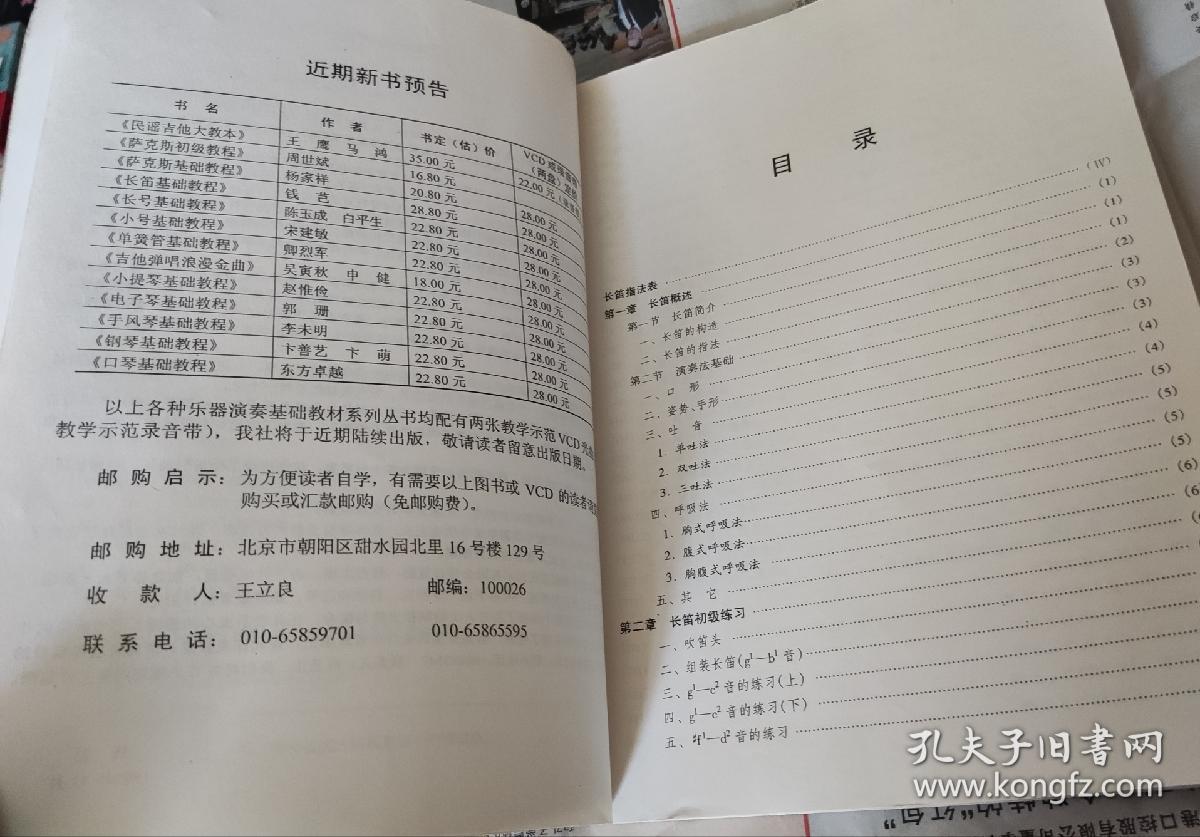 近期新书预告
书 名 作 者 书定（估）价 VCD
《民谣吉他大教本》 王 鹰 马 鸿 35.00 元
《萨克斯初级教程》 周世斌 16.80 元 22.00 元
《萨克斯基础教程》 杨家祥 20.80 元 28.00 元
《长笛基础教程》 钱 芑 28.80 元 28.00 元
《长号基础教程》 陈玉成 白平生 22.80 元 28.00 元
《小号基础教程》 宋建敏 22.80 元 28.00 元
《单簧管基础教程》 卿烈军 22.80 元 28.00 元
《吉他弹唱浪漫金曲》 吴寅秋 申 健 18.00 元 28.00 元
《小提琴基础教程》 赵惟俭 22.80 元 28.00 元
《电子琴基础教程》 郭 珊 22.80 元 28.00 元
《手风琴基础教程》 李未明 22.80 元 28.00 元
《钢琴基础教程》 卞善艺 卞 萌 22.80 元 28.00 元
《口琴基础教程》 东方卓越 22.80 元 28.00 元
以上各种乐器演奏基础教材系列丛书均配有两张教学示范VCD
教学示范录音带），我社将于近期陆续出版，敬请读者留意出版日期。
邮 购 启 示：为方便读者自学，有需要以上图书或 VCD 的读者
购买或汇款邮购（免邮购费）。
邮 购 地 址：北京市朝阳区甜水园北里 16 号楼 129 号
收 款 人：王立良 邮编：100026
联 系 电 话：010-65859701 010-65865595
目 录
长笛指法表 (Ⅳ)
第一章 长笛概述 (1)
第一节 长笛简介 (1)
一、长笛的构造 (1)
二、长笛的指法 (2)
第二节 演奏法基础 (3)
一、口 形 (3)
二、姿势、手形 (3)
三、吐 音 (4)
1．单吐法 (4)
2．双吐法 (5)
3．三吐法 (5)
四、呼吸法 (5)
1．胸式呼吸法 (6)
2．腹式呼吸法 (6
3．胸腹式呼吸法
五、其 它
第二章 长笛初级练习
一、吹笛头
二、组装长笛(g¹—b¹ 音)
三、g¹—c² 音的练习(上)
四、g¹—c² 音的练习(下)
五、♯f¹—d² 音的练习
孔夫子旧书网
www.kongfz.com
港口控股有限公司